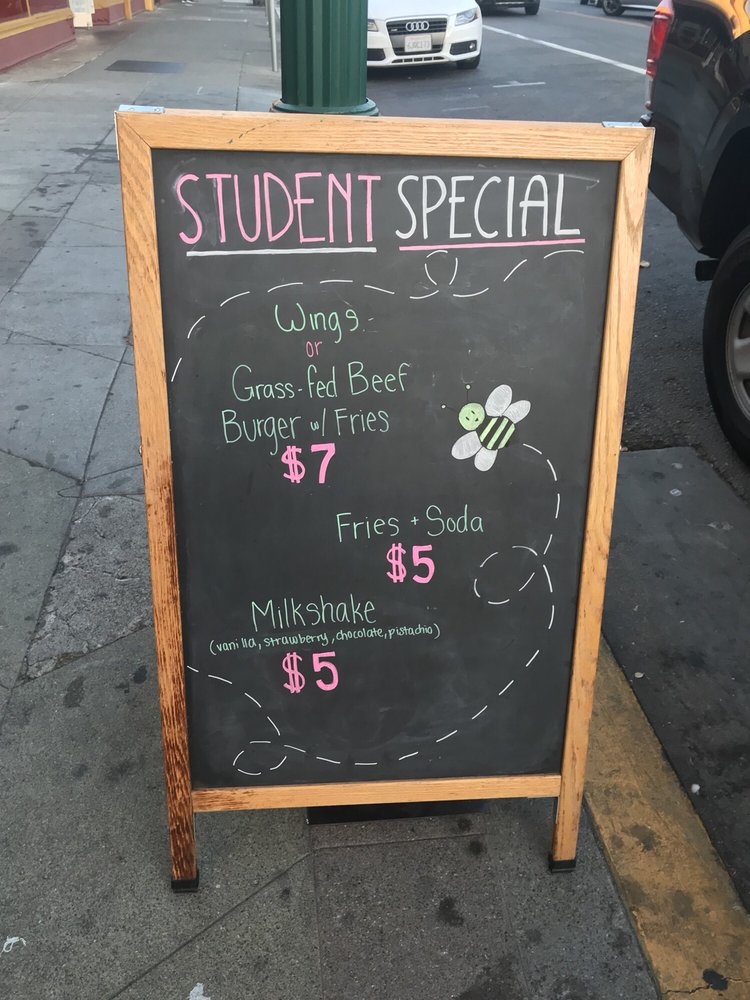 STUDENT SPECIAL
Wings
or
Grass-fed Beef
Burger w/ Fries
$7
Fries + Soda
$5
Milkshake
(vanilla, strawberry, chocolate, pistachio)
$5